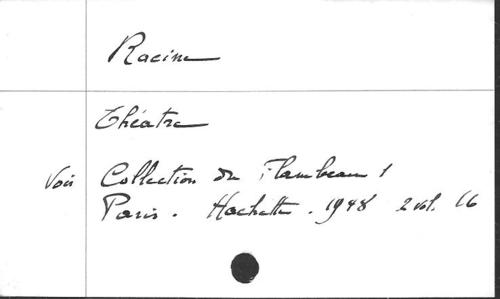 Racine
Théatre
Voir Collection du Flambeau 1
Paris. Hachette. 1948 2 vol. 16